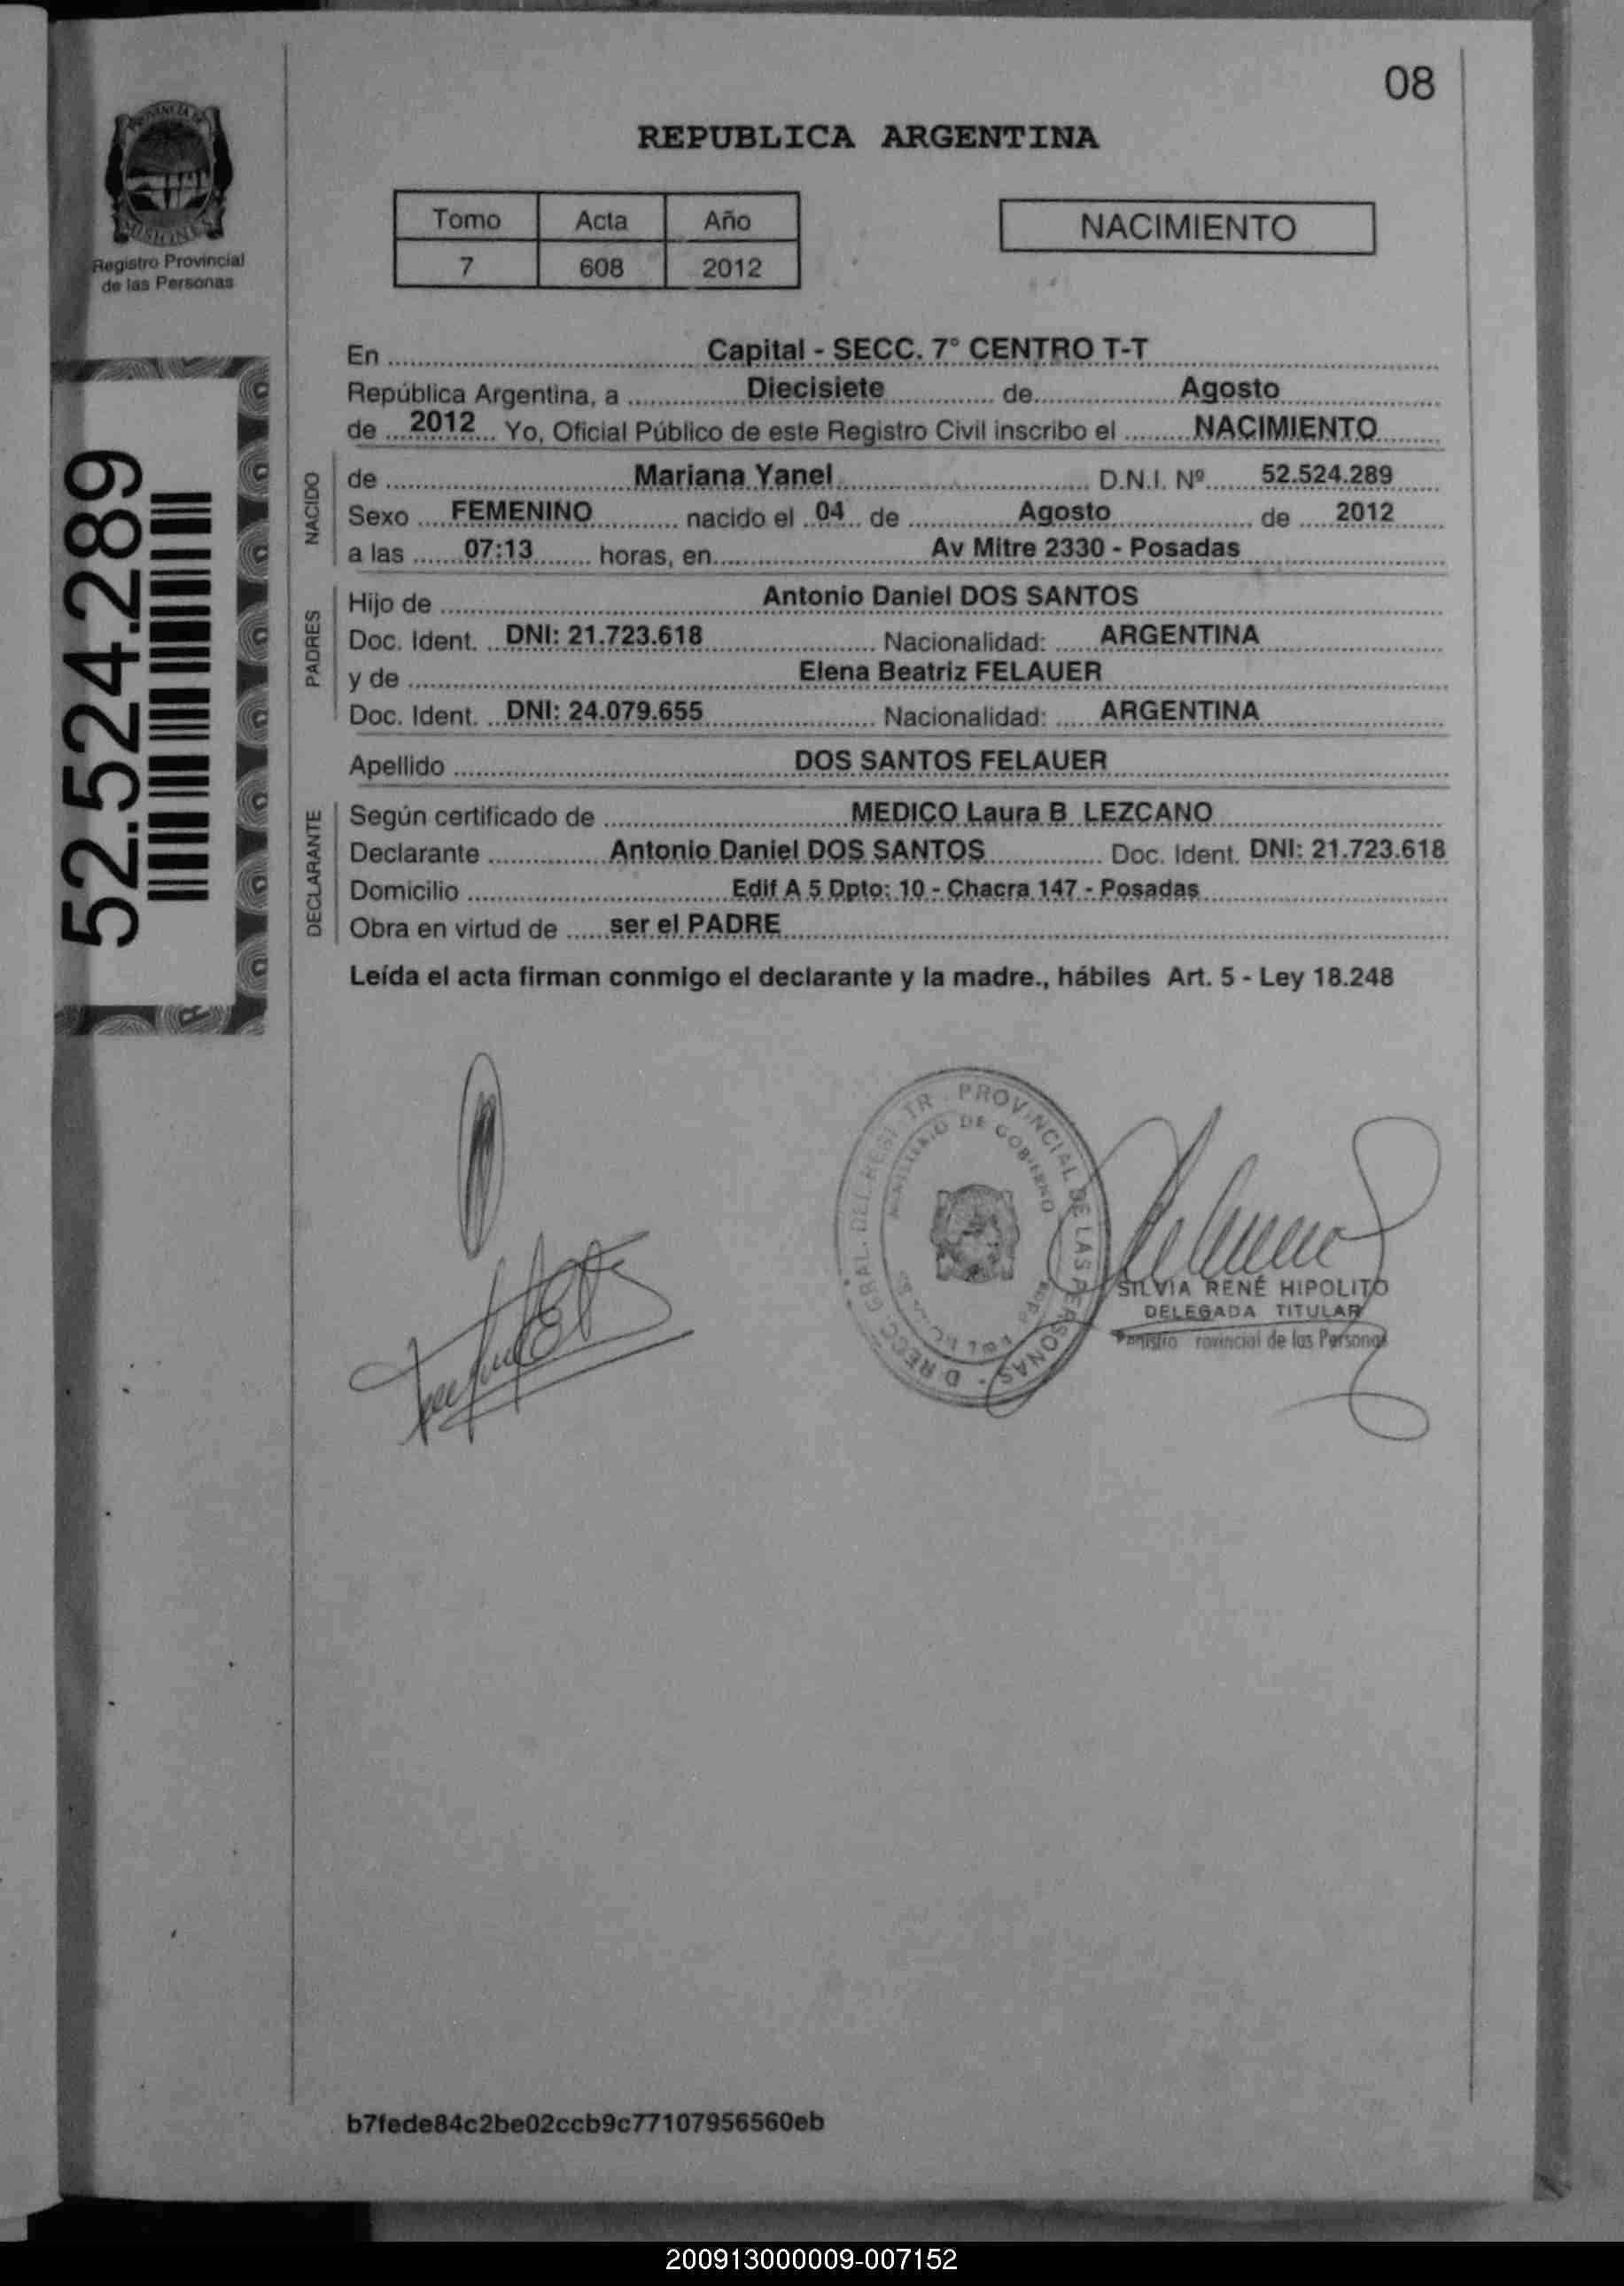 08
REPUBLICA ARGENTINA
PROVINCIA DE
MISIONES
Registro Provincial
de las Personas
Tomo Acta Año
7 608 2012
NACIMIENTO
52.524.289
En Capital - SECC. 7° CENTRO T-T
República Argentina, a Diecisiete de Agosto
de 2012 Yo, Oficial Público de este Registro Civil inscribo el NACIMIENTO
NACIDO
de Mariana Yanel D.N.I. Nº 52.524.289
Sexo FEMENINO nacido el 04 de Agosto de 2012
a las 07:13 horas, en Av Mitre 2330 - Posadas
PADRES
Hijo de Antonio Daniel DOS SANTOS
Doc. Ident. DNI: 21.723.618 Nacionalidad: ARGENTINA
y de Elena Beatriz FELAUER
Doc. Ident. DNI: 24.079.655 Nacionalidad: ARGENTINA
Apellido DOS SANTOS FELAUER
DECLARANTE
Según certificado de MEDICO Laura B LEZCANO
Declarante Antonio Daniel DOS SANTOS Doc. Ident. DNI: 21.723.618
Domicilio Edif A 5 Dpto: 10 - Chacra 147 - Posadas
Obra en virtud de ser el PADRE
Leída el acta firman conmigo el declarante y la madre., hábiles Art. 5 - Ley 18.248
PROVINCIAL DE LAS PERSONAS
DE GOBIERNO
SILVIA RENÉ HIPOLITO
DELEGADA TITULAR
rovincial de las Personas
b7fede84c2be02ccb9c77107956560eb
200913000009-007152